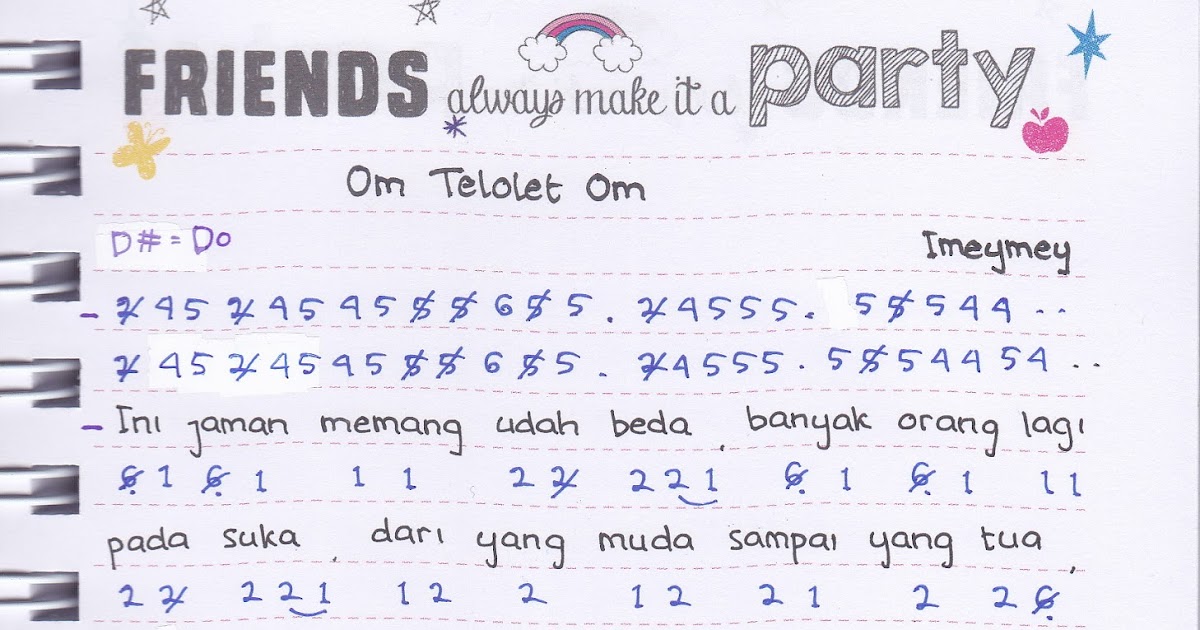 FRIENDS always make it a party
Om Telolet Om
D# = Do
Imeymey
- 2̸ 4 5 2̸ 4 5 4 5 5̸ 5̸ 6 5̸ 5 . 2̸ 4 5 5 5 . 5 5̸ 5 4 4 . .
2̸ 4 5 2̸ 4 5 4 5 5̸ 5̸ 6 5̸ 5 . 2̸ 4 5 5 5 . 5 5̸ 5 4 4 5 4 . .
- Ini jaman memang udah beda , banyak orang lagi
6̸̣ 1 6̸̣ 1 1 1 2 2̸ 2 2 1 6̸̣ 1 6̸̣ 1 1 1
pada suka , dari yang muda sampai yang tua ,
2 2̸ 2 2 1 1 2 2 1 2 2 1 2 2 6̸̣